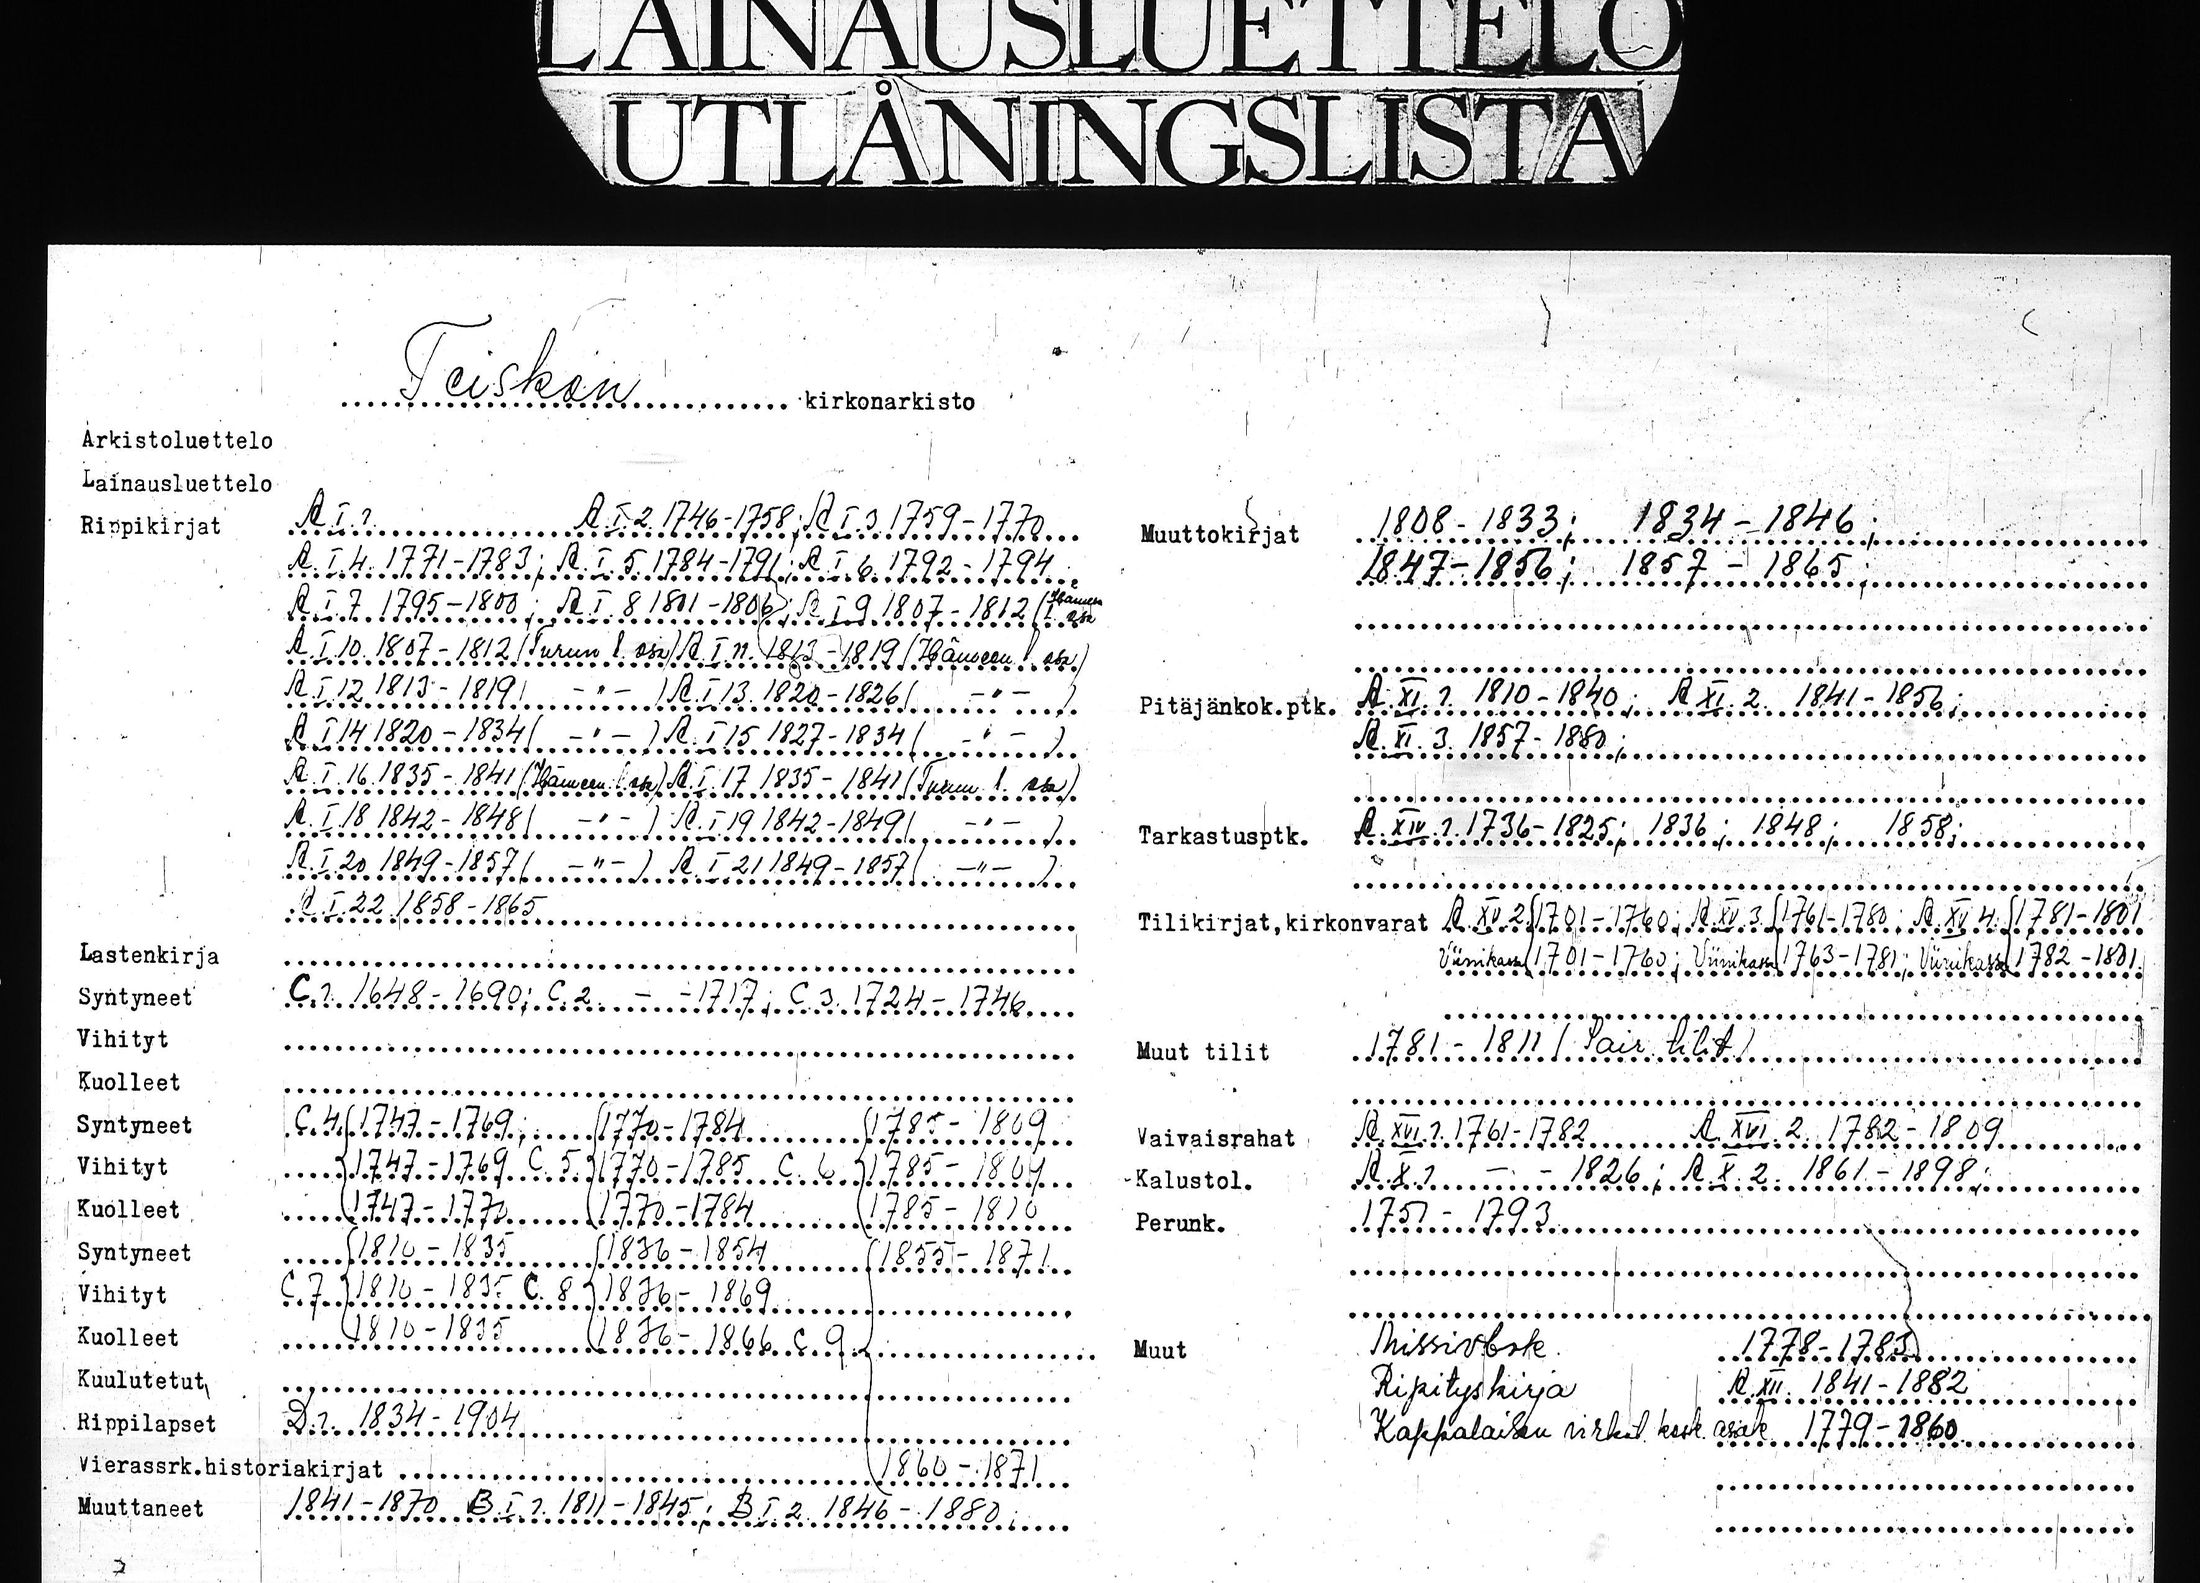 LAINAUSLUETTELO
UTLÅNINGSLISTA
Teiskon kirkonarkisto
Arkistoluettelo
Lainausluettelo
Rippikirjat A I.1. A I.2 1746-1758; A I.3 1759-1770
A I.4. 1771-1783; A I.5 1784-1791; A I 6. 1792-1794
A I 7 1795-1800; A I. 8 1801-1806; A I 9 1807-1812 (Hämeen l. osa
A I.10. 1807-1812 (Turun l. osa) A I 11. 1813-1819 (Hämeen l. osa)
A I.12 1813-1819 ( -"- ) A I 13. 1820-1826 ( -"- )
A I 14 1820-1834 ( -"- ) A I 15 1827-1834 ( -"- )
A I. 16 1835-1841 (Hämeen l. osa) A I 17 1835-1841 (Turun l. osa)
A I.18 1842-1848 ( -"- ) A I 19 1842-1849 ( -"- )
A I.20 1849-1857 ( -"- ) A I 21 1849-1857 ( -"- )
A I.22 1858-1865
Lastenkirja
Syntyneet C.1. 1648-1690; C.2. - -1717; C 3. 1724-1746
Vihityt
Kuolleet
Syntyneet C.4 1747-1769; 1770-1784 1785-1809
Vihityt 1747-1769 C.5. 1770-1785 C. 6 1785-1809
Kuolleet 1747-1770 1770-1784 1785-1810
Syntyneet 1810-1835 1836-1854 1855-1871
Vihityt C.7 1810-1835 C. 8 1836-1869
Kuolleet 1810-1835 1836-1866 C 9
Kuulutetut
Rippilapset D.1. 1834-1904
Vierassrk.historiakirjat 1860-1871
Muuttaneet 1841-1870 B I 1. 1811-1845; B I 2. 1846-1880
Muuttokirjat 1808-1833; 1834-1846;
1847-1856; 1857-1865;
Pitäjänkok.ptk. A XI.1. 1810-1840; A XI. 2. 1841-1856;
A XI. 3. 1857-1880;
Tarkastusptk. A XIV.1. 1736-1825; 1836; 1848; 1858;
Tilikirjat,kirkonvarat A XV 2 1701-1760; A XV 3 1761-1780; A XV 4. 1781-1801
Viinikassa 1701-1760; Viinikassa 1763-1781; Viinikassa 1782-1801
Muut tilit 1781-1811 (Sair. tilit)
Vaivaisrahat A XVI.1. 1761-1782 A XVI. 2. 1782-1809
Kalustol. A X.1 - - 1826; A X. 2. 1861-1898;
Perunk. 1751-1793
Muut 1778-1783
Ripityskirja A XII. 1841-1882
Kappalaisen virkat. kosk. asiak 1779-1860